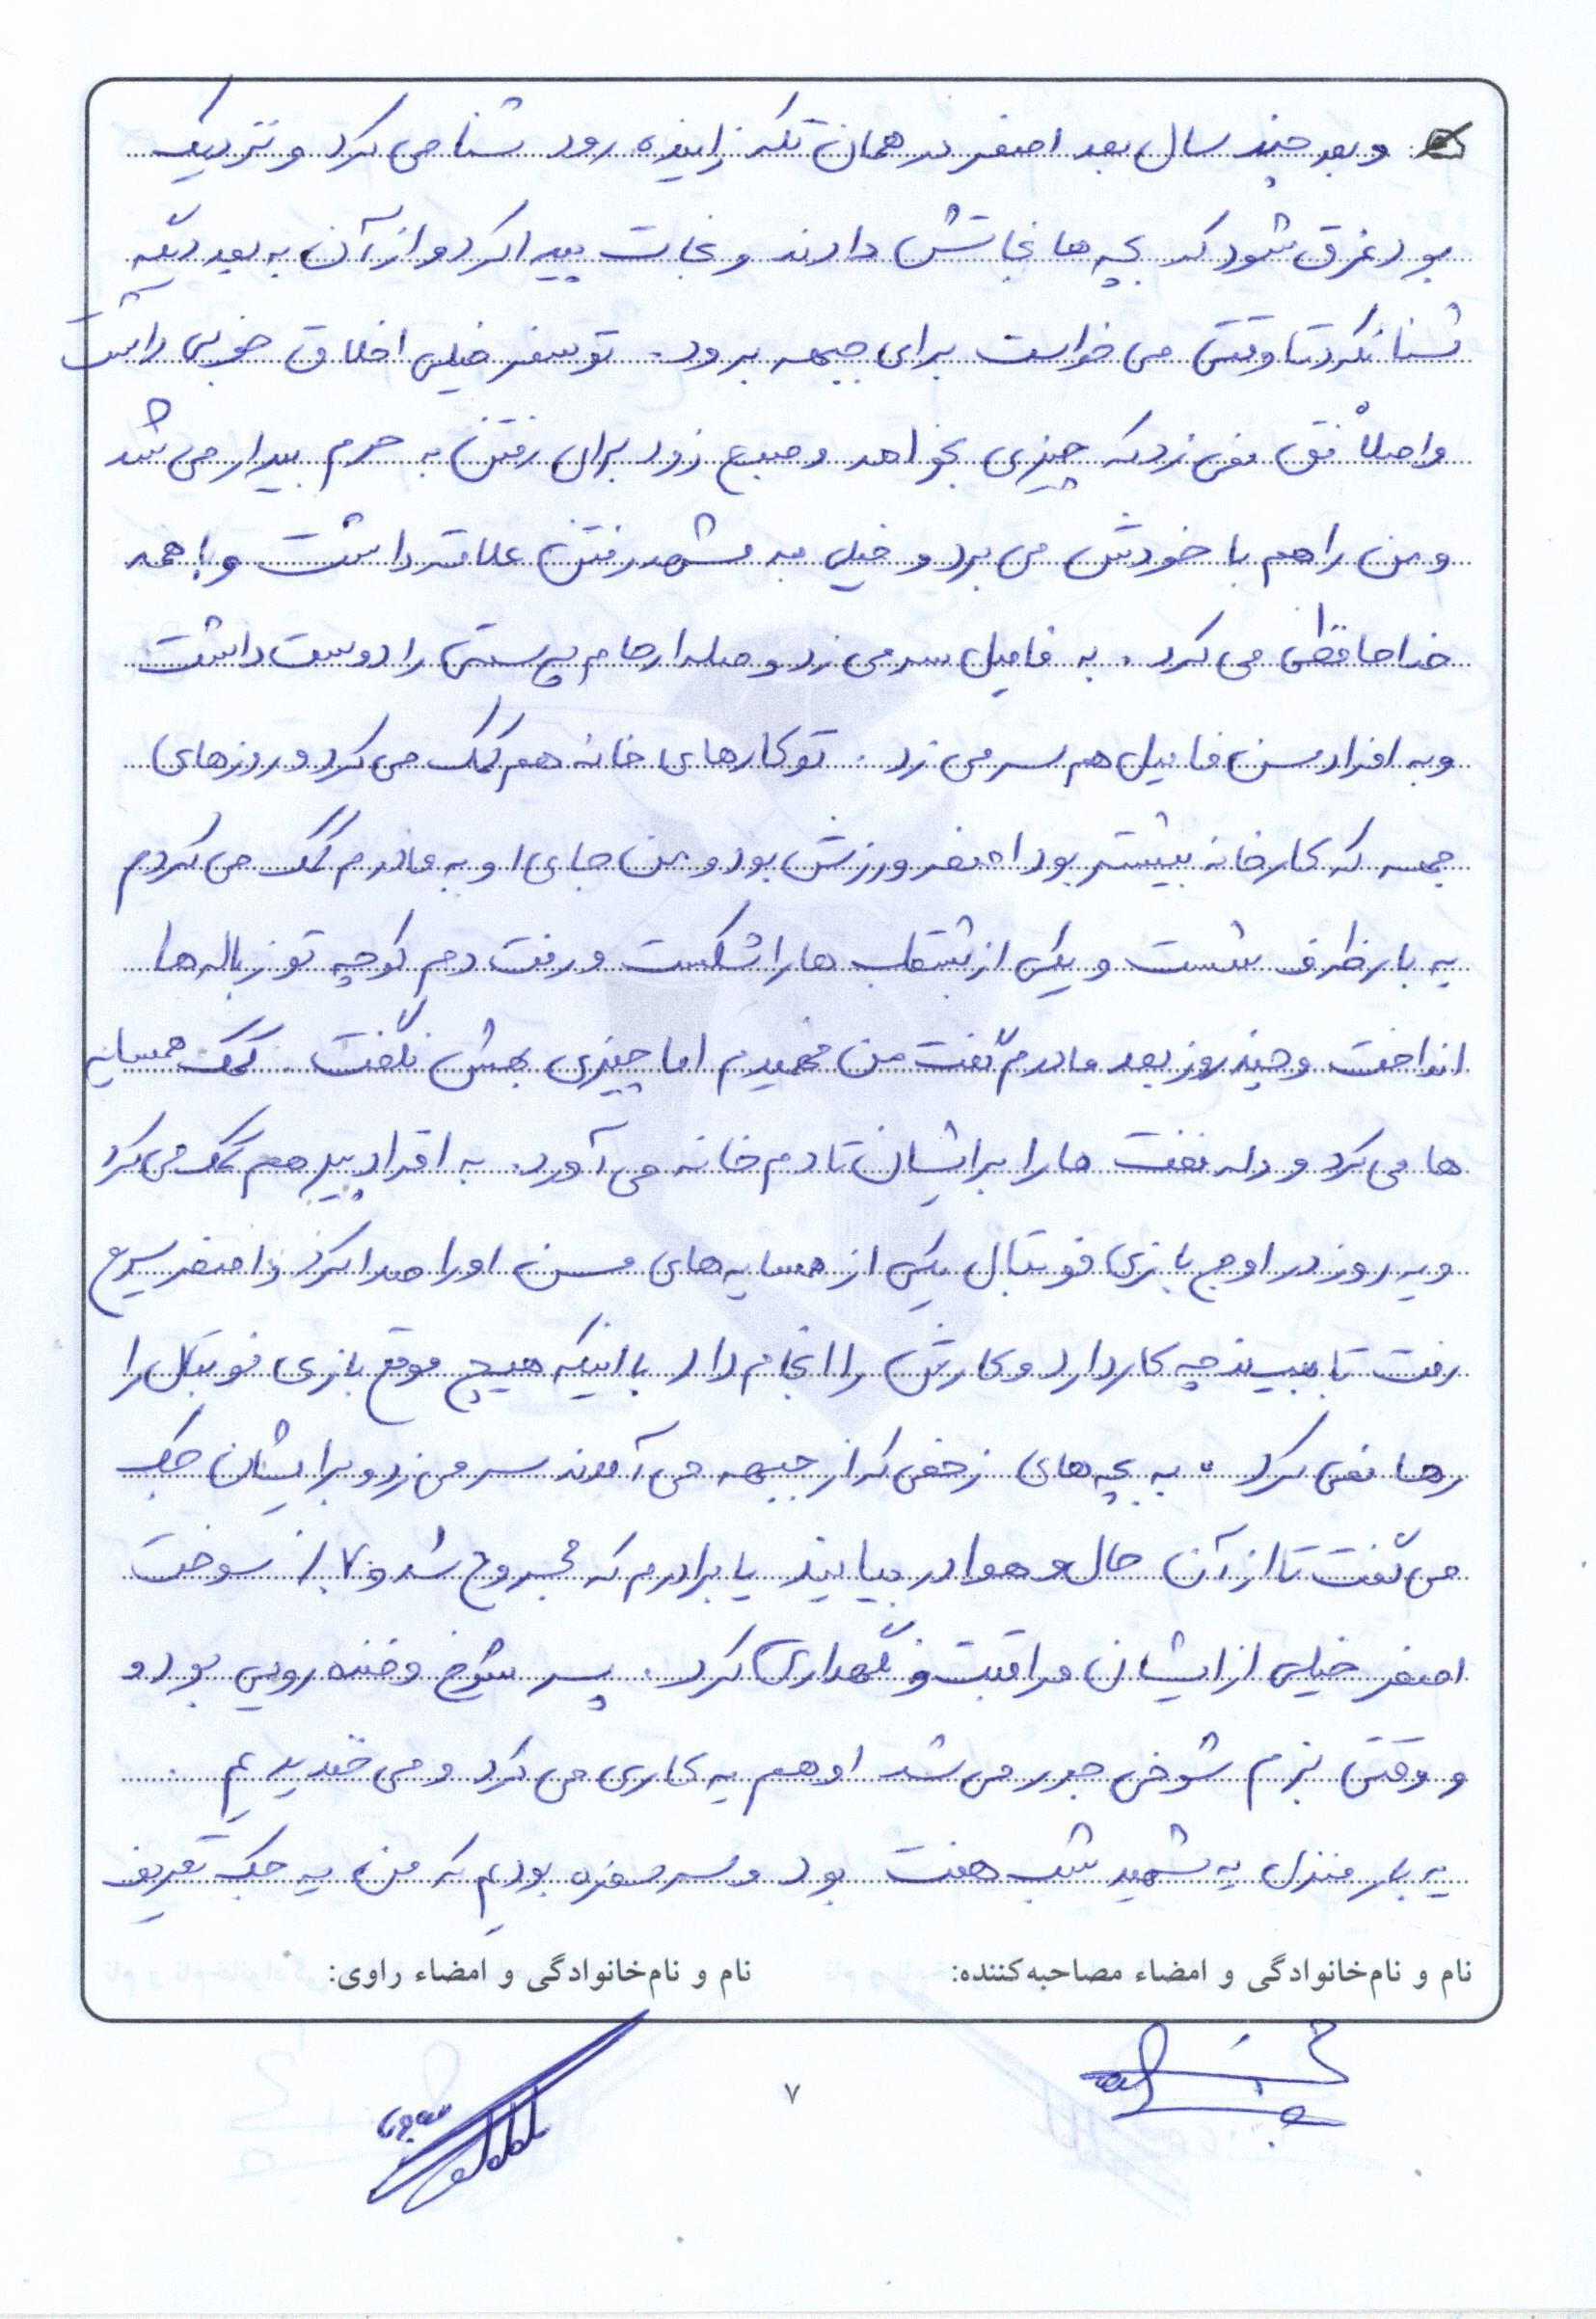 و بعد چند سال بعد اصغر در همان تکه زاینده رود شنا می کرد و نزدیک
بود غرق شود که بچه ها نجاتش دادند و نجات پیدا کرد و از آن به بعد دیگه
شنا نکرد تا وقتی می خواست برای جبهه برود. تو سفر خیلی اخلاق خوبی داشت
و اصلاً نق نمی زد که چیزی بخواهد و صبح زود برای رفتن به حرم بیدار می شد
و من را هم با خودش می برد و خیلی به مشهد رفتن علاقه داشت و با همه
خداحافظی می کرد. به فامیل سر می زد و صله ارحام پرستی را دوست داشت
و به افراد مسن فامیل هم سر می زد. تو کارهای خانه هم کمک می کرد و روزهای
جمعه که کار خانه بیشتر بود اصغر ورزش بود و من جای او به مادرم کمک می کردم
یه بار ظرف شست و یکی از بشقاب ها را شکست و رفت دم کوچه تو زباله ها
انداخت و چند روز بعد مادرم گفت من فهمیدم اما چیزی بهش نگفت. کمک همسایه
ها می کرد و دله نفت ها را برایشان تا دم خانه می آورد. به افراد پیر هم کمک می کرد
و یه روز در اوج بازی فوتبال یکی از همسایه های مسن او را صدا کرد و اصغر سریع
رفت تا ببیند چه کار دارد و کارش را انجام داد با اینکه هیچ موقع بازی فوتبال را
رها نمی کرد. به بچه های زخمی که از جبهه می آمدند سر می زد و برایشان جک
می گفت تا از آن حال و هوا در بیایند یا برادرم که مجروح شد و ۷۰٪ سوخت
اصغر خیلی از ایشان مراقبت و نگهداری کرد. پسر شوخ و خنده رویی بود و
و وقتی بزم شوخی جور می شد او هم یه کاری می کرد و می خندیدیم.
یه بار منزل یه شهید شب هفت بود و سر سفره بودیم که من یه جک تعریف
نام و نام‌خانوادگی و امضاء مصاحبه‌کننده:
نام و نام‌خانوادگی و امضاء راوی:
۷